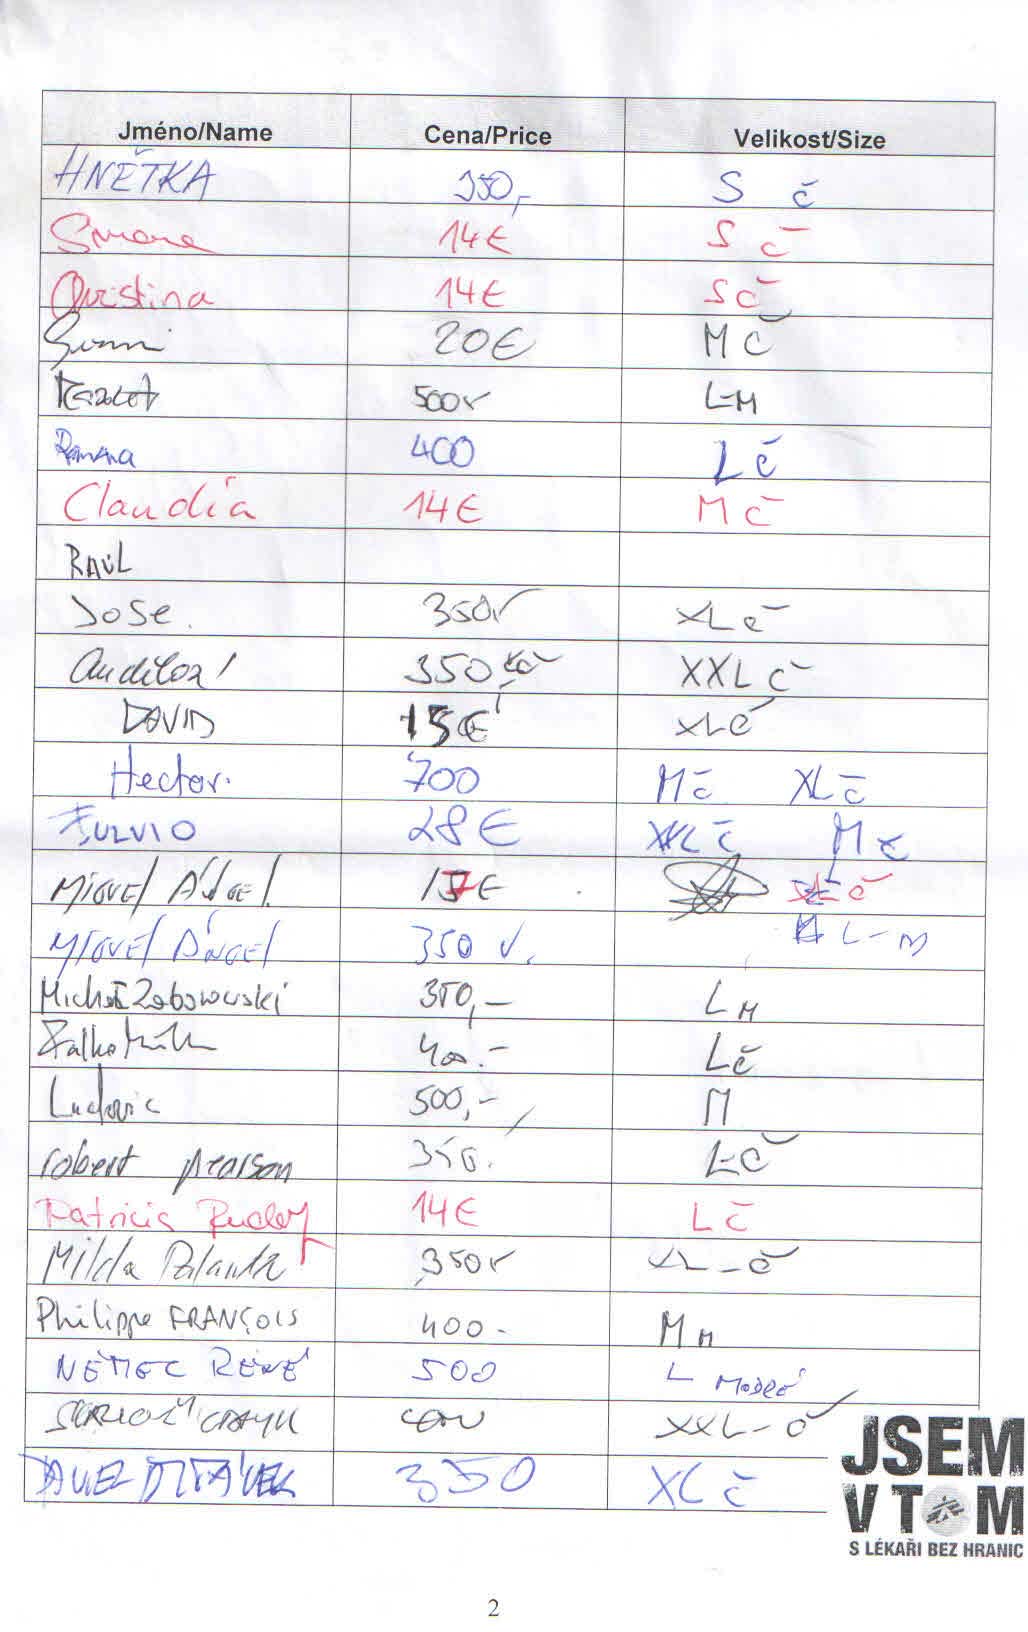 Jméno/Name Cena/Price Velikost/Size
HNĚTKA 350,- S č
14€ S č
Christina 14€ S č
20€ M č
500 L-M
Romana 400 L č
Claudia 14€ M č
RAÚL
Jose. 350 XL č
350 Kč XXL č
DAVID 15€ XL č
Hector. 700 M č XL č
FULVIO 28€ XXL č M č
MIGUEL ÁNGEL € č
MIGUEL ÁNGEL 350 L-M
Michał Zaborowski 350,- L M
Falko 400.- L č
Ludovic 500,- M
robert pearson 350. L-č
Patricia 14€ L č
Milda 350 XL-č
Philippe FRANÇOIS 400- M M
NĚMEC RENÉ 500 L MODRÉ
XXL-č
350 XL č
JSEM
V TOM
S LÉKAŘI BEZ HRANIC
2